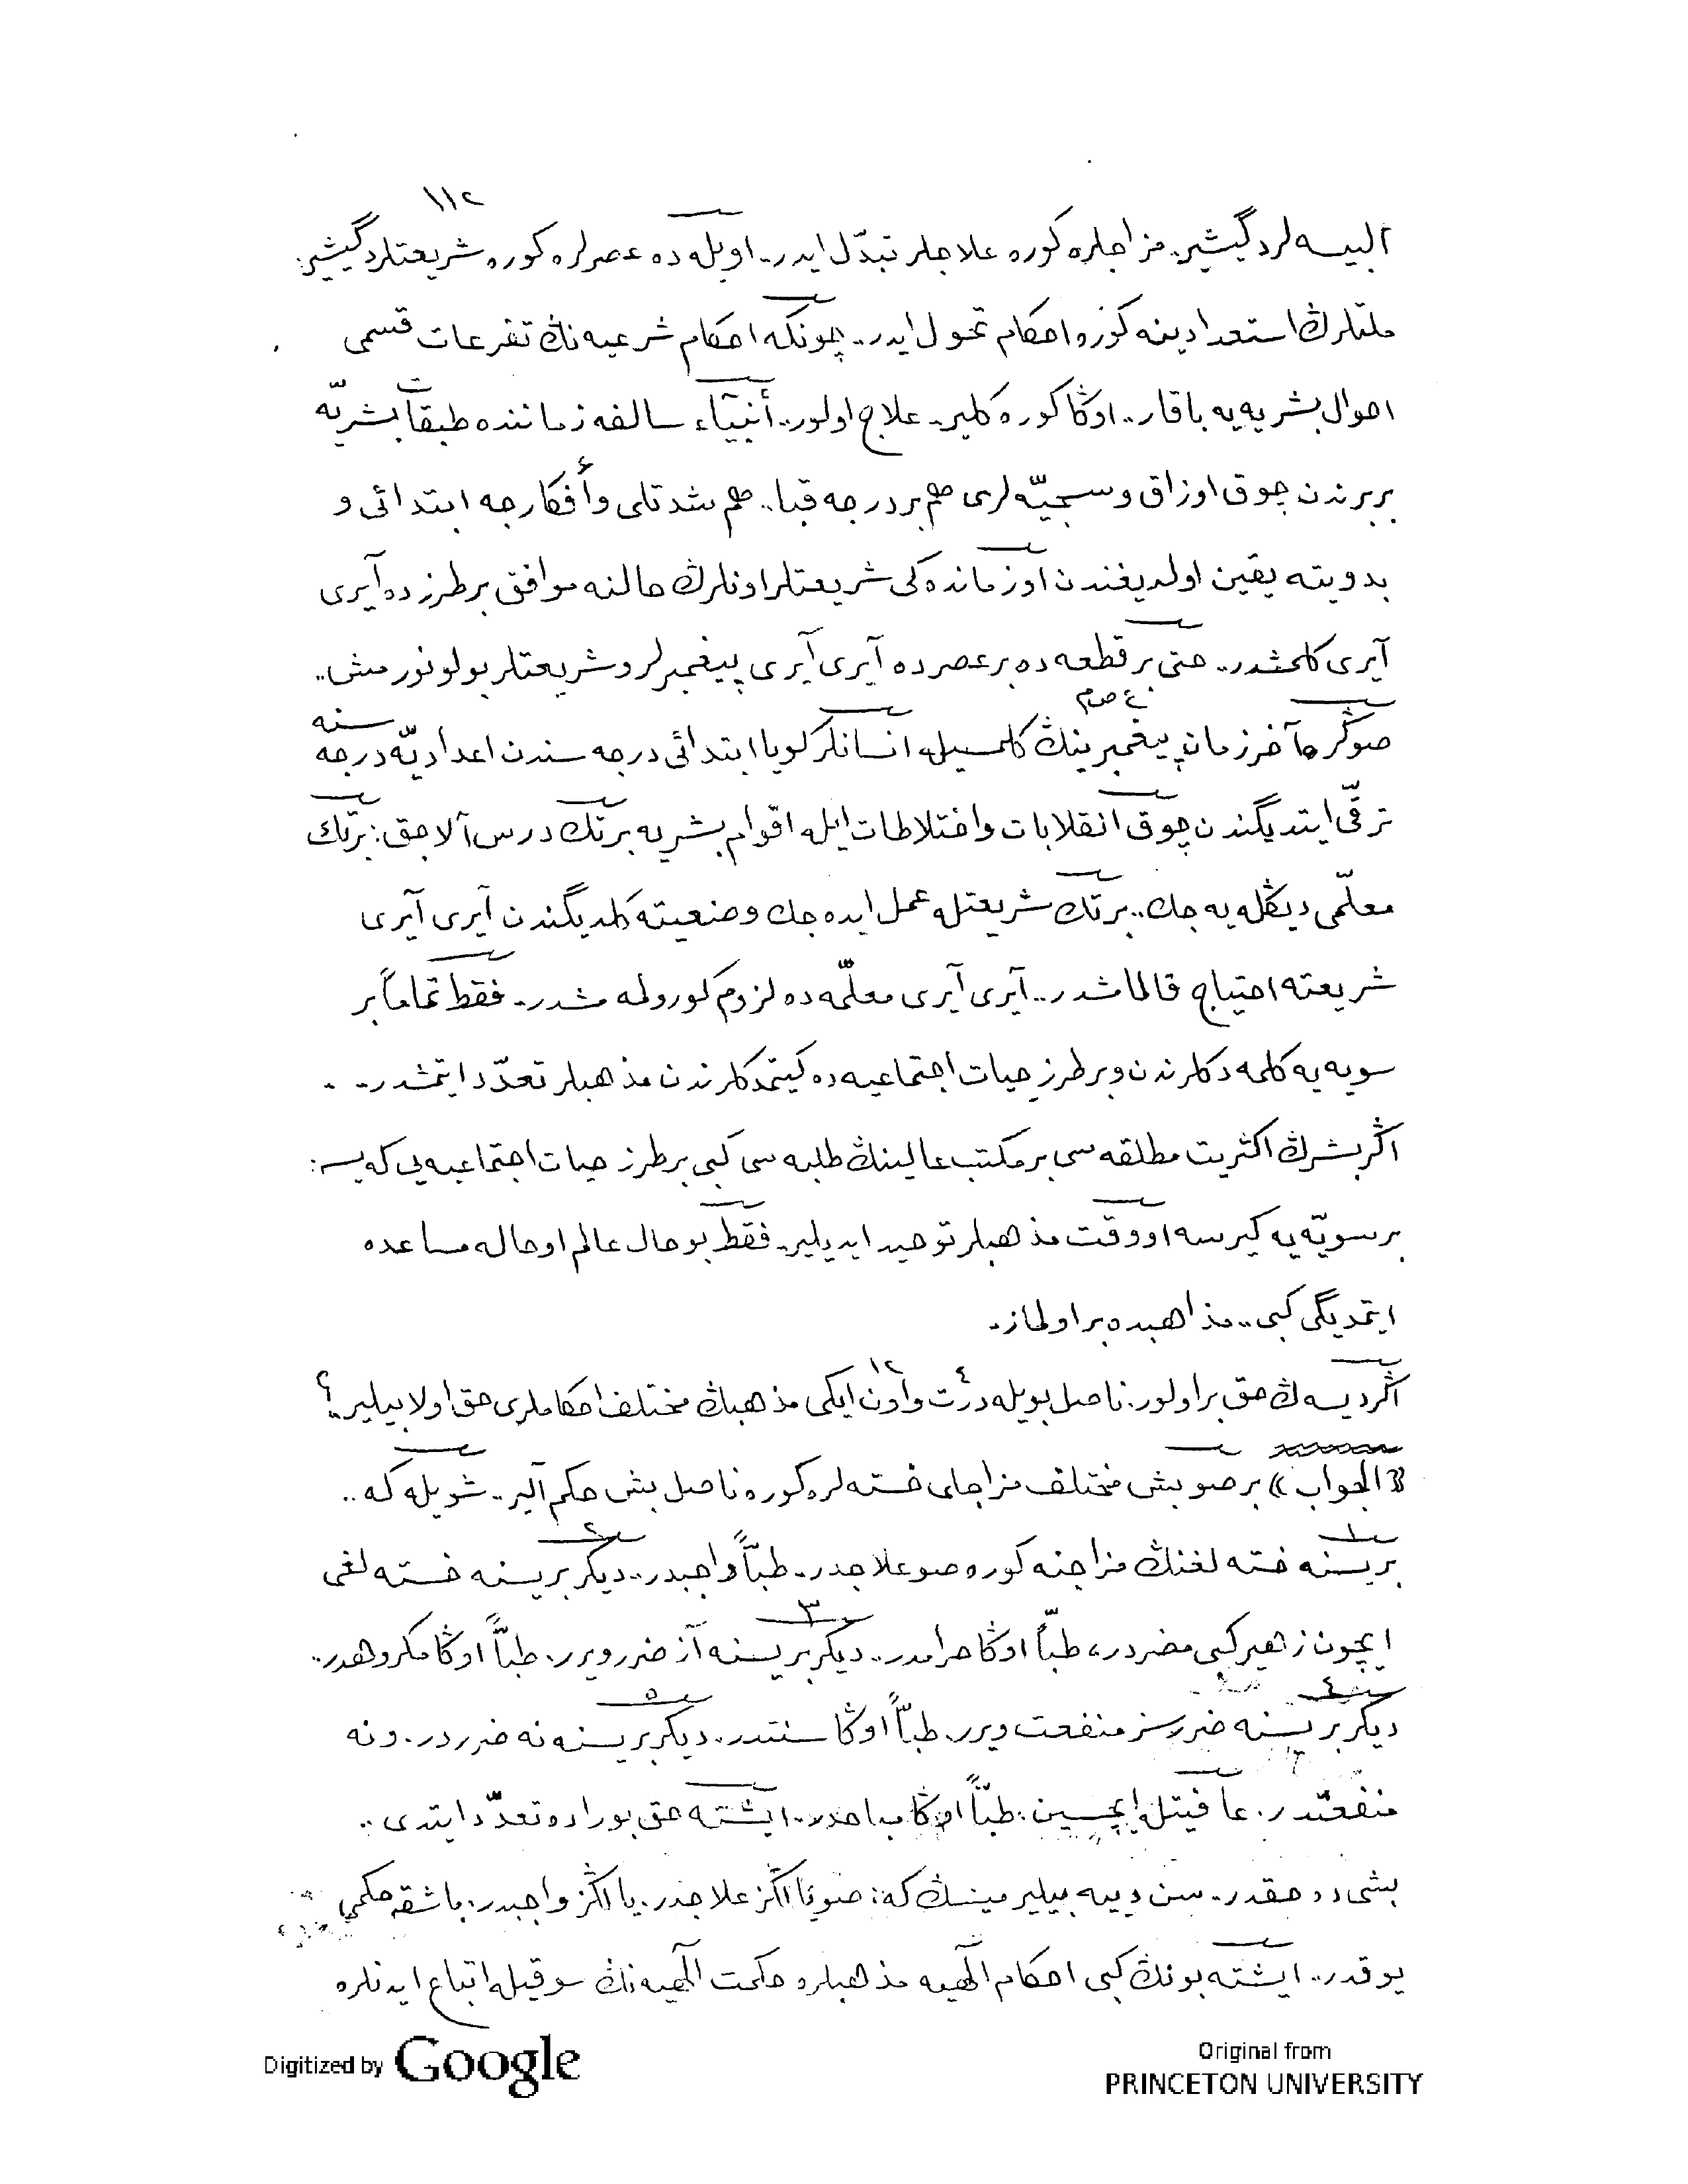 ١١٢
البسه‌لر دگیشیر. مزاجلره کوره علاجلر تبدّل ایدر.. اویله‌ده عصرلره کوره شریعتلر دگیشیر:
ملتلرڭ استعدادینه کوره احکام تحول ایدر.. چونکه احکام شرعیه‌نڭ تفرعات قسمی
احوال بشریه‌یه باقار.. اوڭا کوره کلیر. علاج اولور.. أنبیآء سالفه زماننده طبقات بشریّه
بربرندن چوق اوزاق و سجیّه‌لری هم بر درجه قبا.. هم شدتلی و أفکارجه ابتدائی و
بدویته یقین اولدیغندن او زمانده‌کی شریعتلر اونلرڭ حالنه موافق بر طرزده آیری
آیری کلمشدر.. حتی بر قطعه‌ده بر عصرده آیری آیری پیغمبرلر و شریعتلر بولونورمش..
ع ص م
صوڭره آخر زمان پیغمبرینڭ کلمسیله انسانلر کویا ابتدائی درجه‌سندن اعدادیّه درجه‌سنه
ترقّی ایتدیگندن چوق انقلابات و اختلاطات ایله اقوام بشریه برتك درس آلاجق: برتك
معلّمی دیڭله‌یه‌جك.. برتك شریعتله عمل ایده‌جك وضعیته کلدیگندن آیری آیری
شریعته احتیاج قالماشدر.. آیری آیری معلّمه‌ده لزوم کورولمه‌مشدر. فقط تماماً بر
سویه‌یه کلمه‌دکلرندن و بر طرز حیات اجتماعیه‌ده کیتمدکلرندن مذهبلر تعدّد ایتمشدر..
اڭر بشرڭ اکثریت مطلقه‌سی بر مکتب عالینڭ طلبه‌سی کبی بر طرز حیات اجتماعیه‌یی کیسه:
بر سویّه‌یه کیرسه او وقت مذهبلر توحید ایدیلیر. فقط بو حال عالم او حاله مساعده
ایتمدیگی کبی.. مذاهبده بر اولماز.
٤ ١٢
اڭر دیسه‌ڭ حق بر اولور. ناصل بویله درت و اون ایکی مذهبڭ مختلف احکاملری حق اولابیلیر؟
«الجواب» بر صو بش مختلف مزاجلی خسته‌لره کوره ناصل بش حکم آلیر.. شویله که..
١ ٢
بریسنه خسته‌لغنڭ مزاجنه کوره صو علاجدر. طبّاً واجبدر.. دیکر بریسنه خسته‌لغی
٣
ایچون زهیر کبی مضردر، طبّاً اوڭا حرامدر.. دیکر بریسنه آز ضرر ویرر. طبّاً اوڭا مکروهدر..
٤ ٥
دیکر بریسنه ضررسز منفعت ویرر. طبّاً اوڭا سنتدر. دیکر بریسنه نه ضرردر. و نه
منفعتدر. عافیتله ایچسین. طبّاً اوڭا مباحدر. ایشته حق بوراده تعدّد ایتدی..
بشی‌ده حقدر. سن دییه‌بیلیرمیسڭ که: صو یاالڭز علاجدر. یاالڭز واجبدر. باشقه حکمی
یوقدر.. ایشته بونڭ کبی احکام الهیه مذهبلره حکمت الهیه‌نڭ سوقیله اتباع ایدنلره
Digitized by Google
Original from
PRINCETON UNIVERSITY